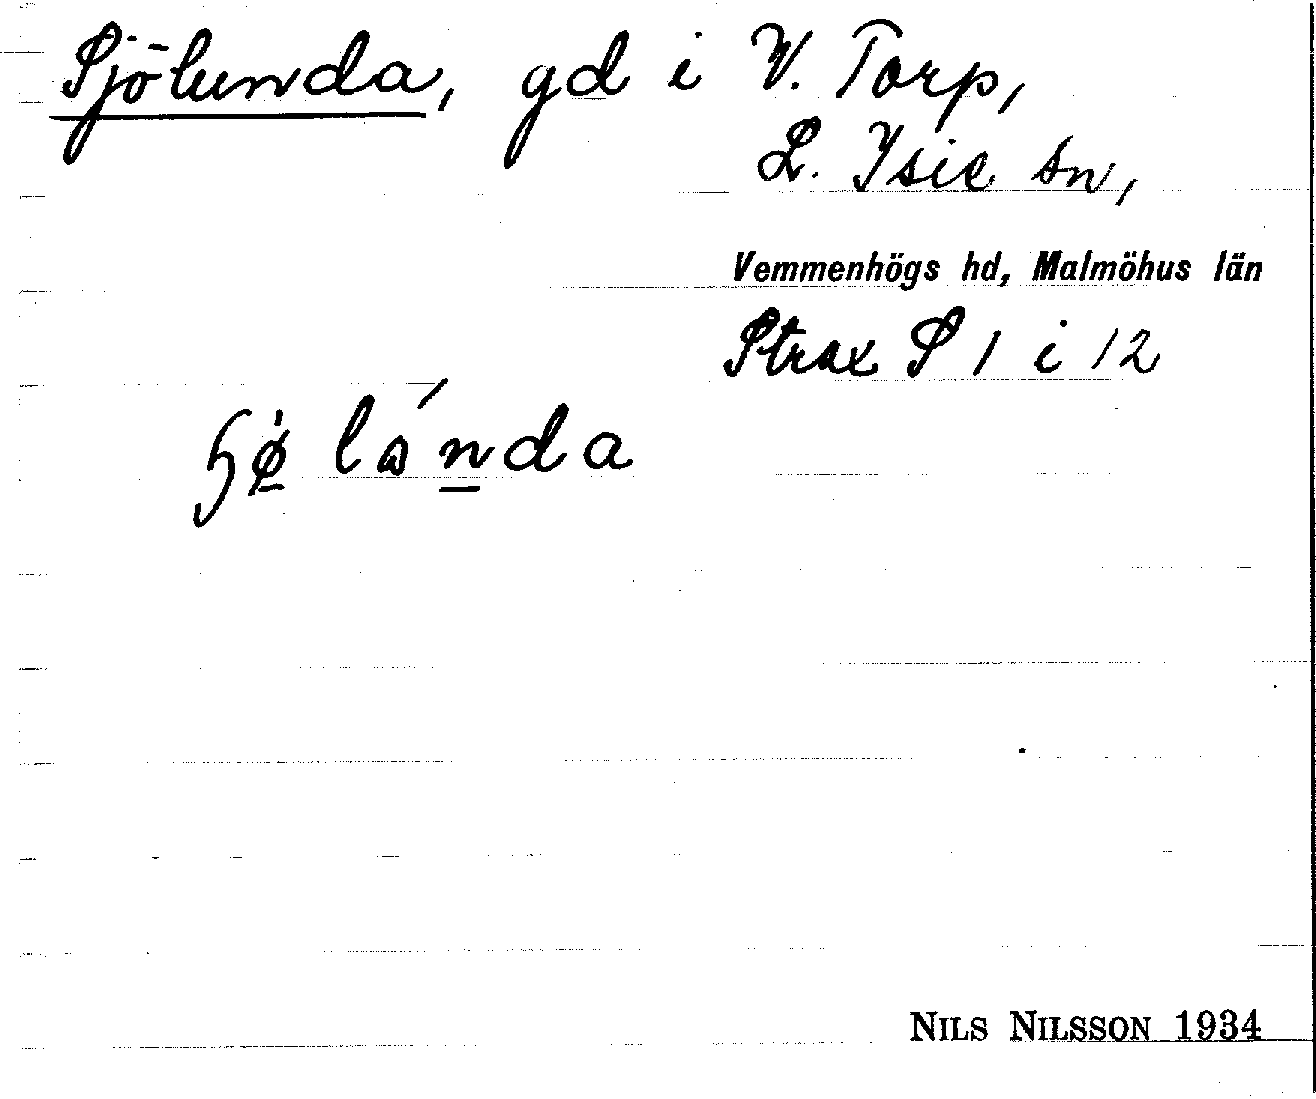 Sjölunda, gd i V. Torp,
L. Isie sn,
Vemmenhögs hd, Malmöhus län
Strax S 1 i 12
NILS NILSSON 1934